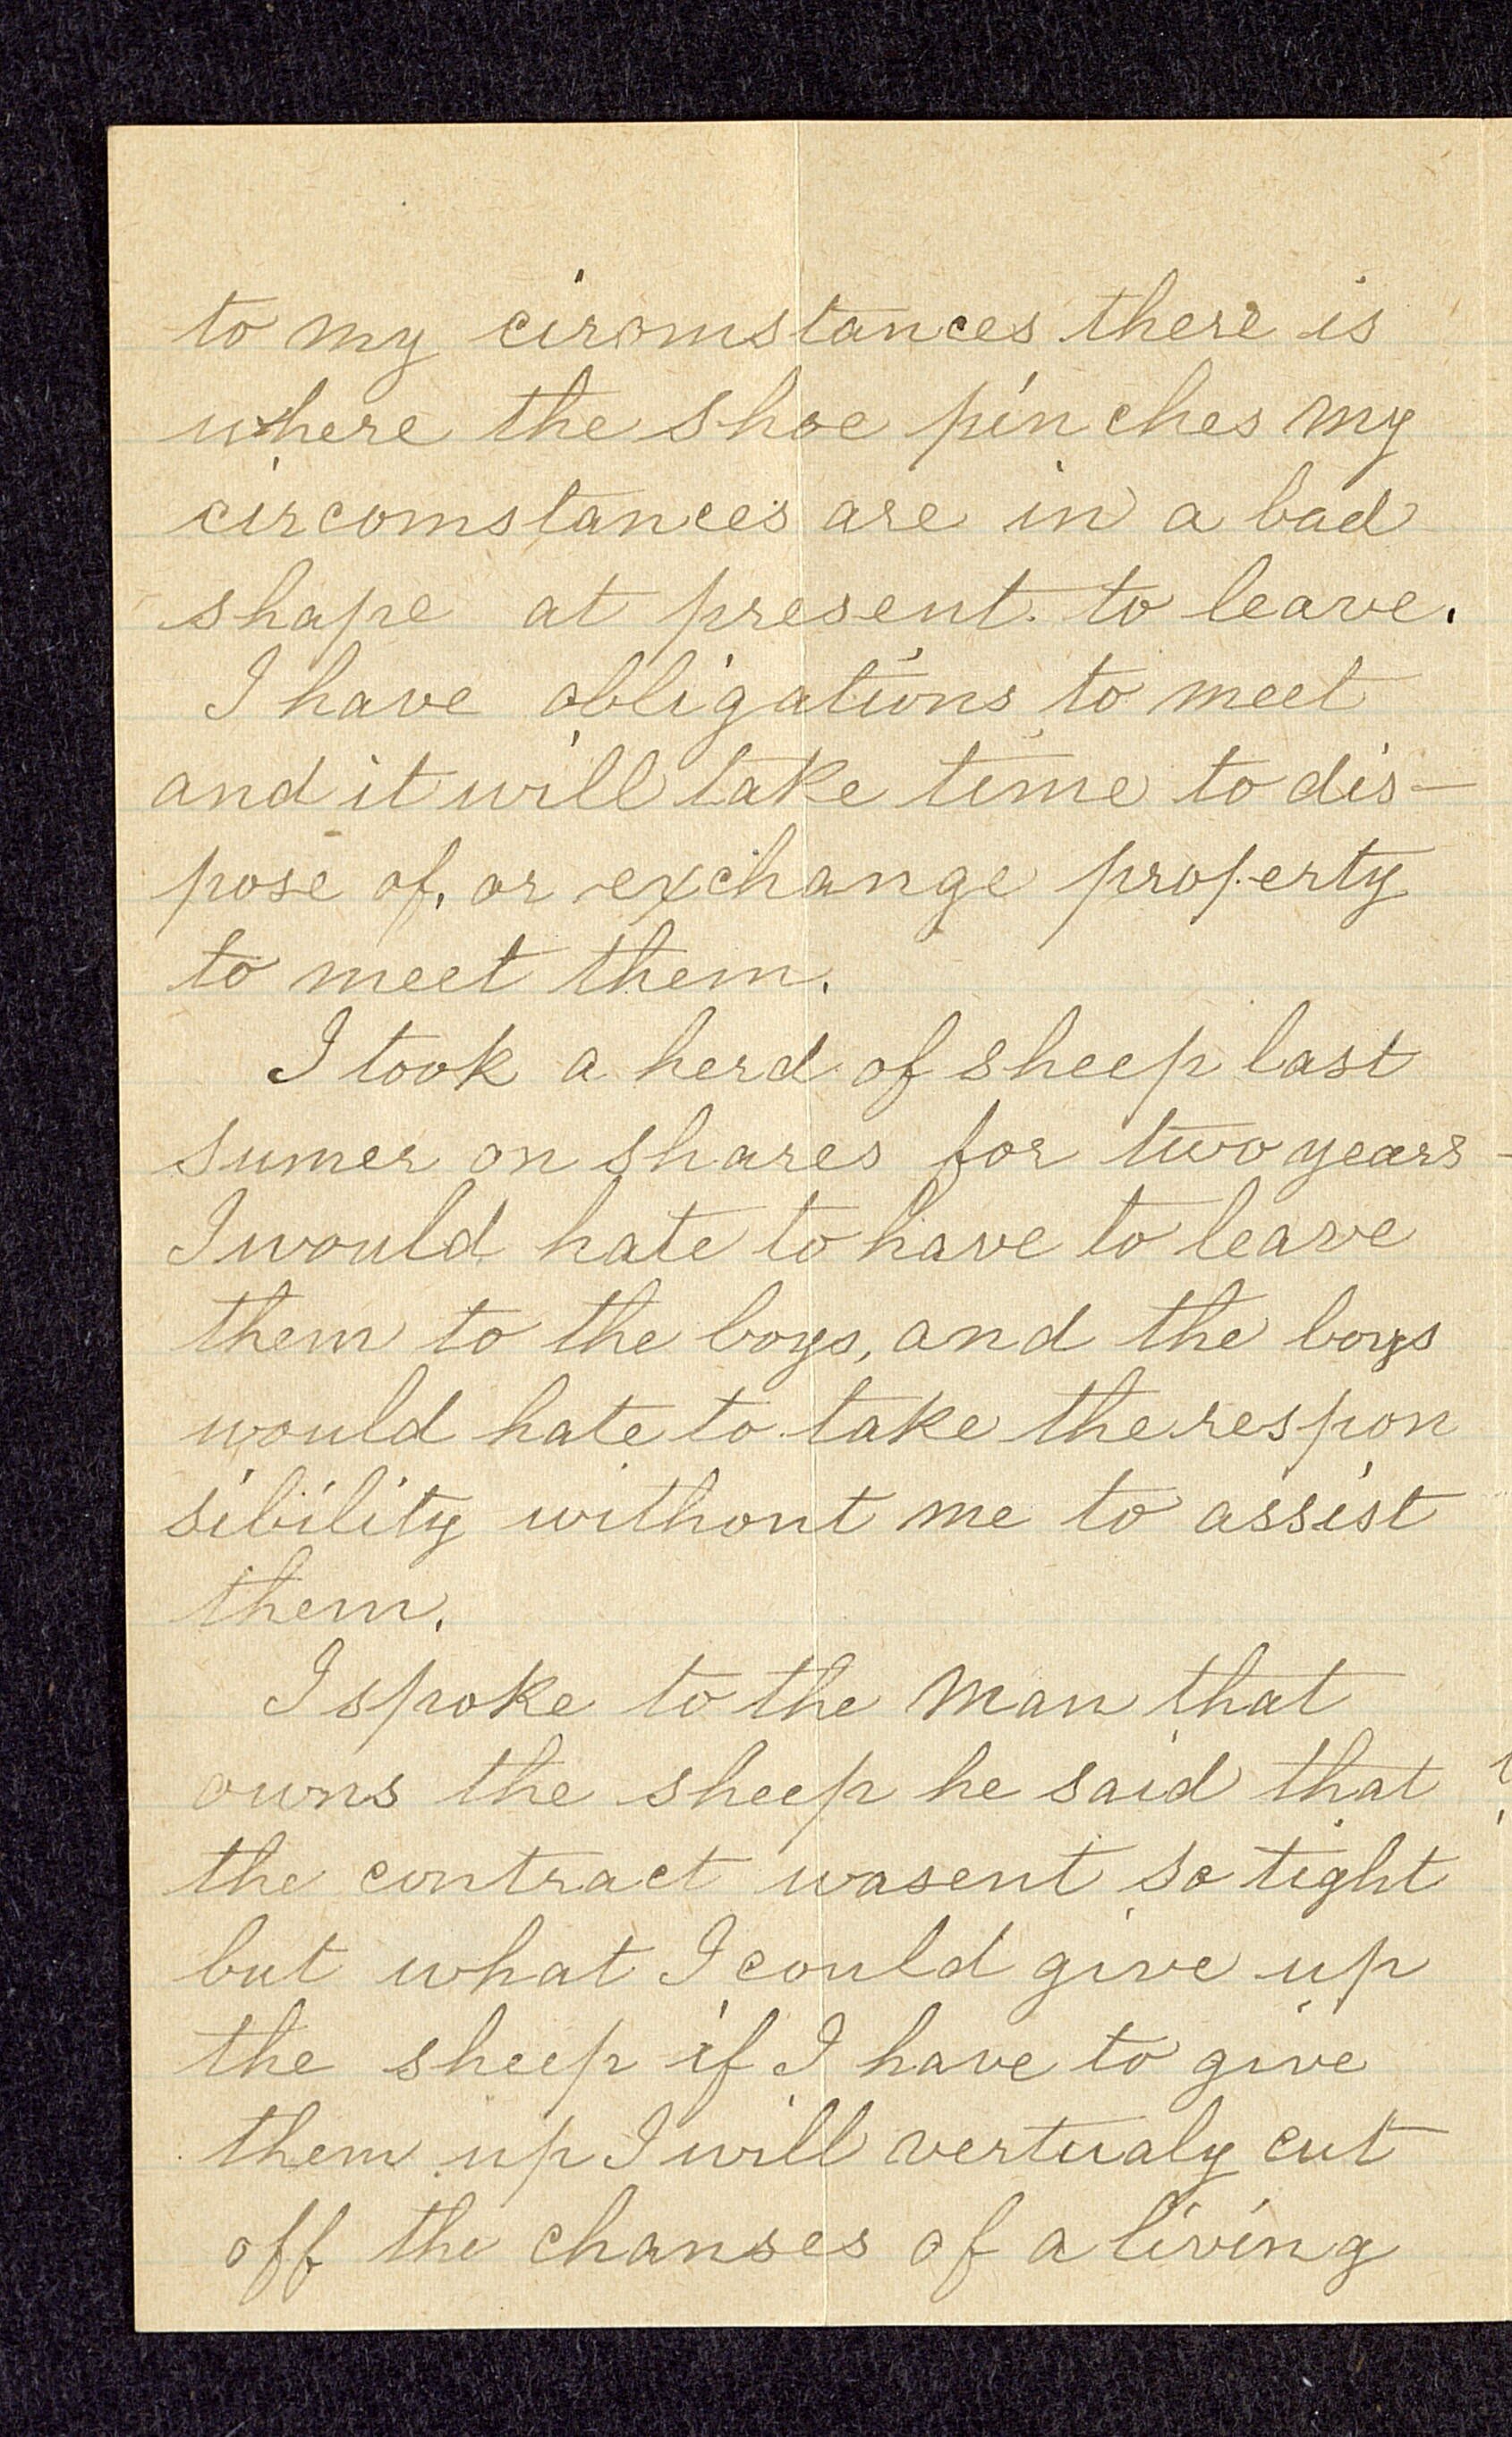 to my ciromstances there is
where the shoe pinches my
circomstances are in a bad
shape at present to leave.
I have obligations to meet
and it will take time to dis-
pose of, or exchange property
to meet them.
I took a herd of sheep last
sumer on shares for two years -
I would hate to have to leave
them to the boys, and the boys
would hate to take the respon
sibility without me to assist
them.
I spoke to the man that
owns the sheep he said that
the contract wasent so tight
but what I could give up
the sheep if I have to give
them up I will vertualy cut
off the chanses of a living